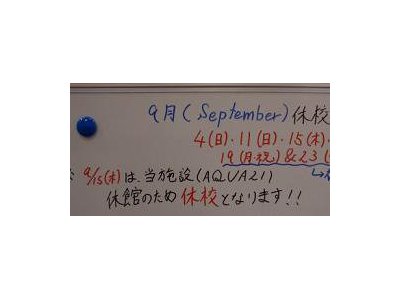 9月(September)休校
4(日)・11(日)・15(木)・
19(月祝)&23(
9/15(木)は、当施設(AQUA21)
休館のため休校となります!!